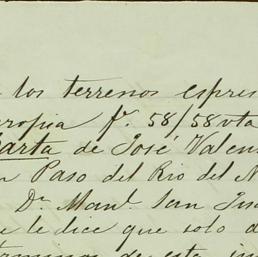 los terrenos espres
propia f.ª 58/58vta
Carta de José Valen
n Paso del Rio del N
Dn Manl. San Jua
e le dice que solo d
terminos de esta in